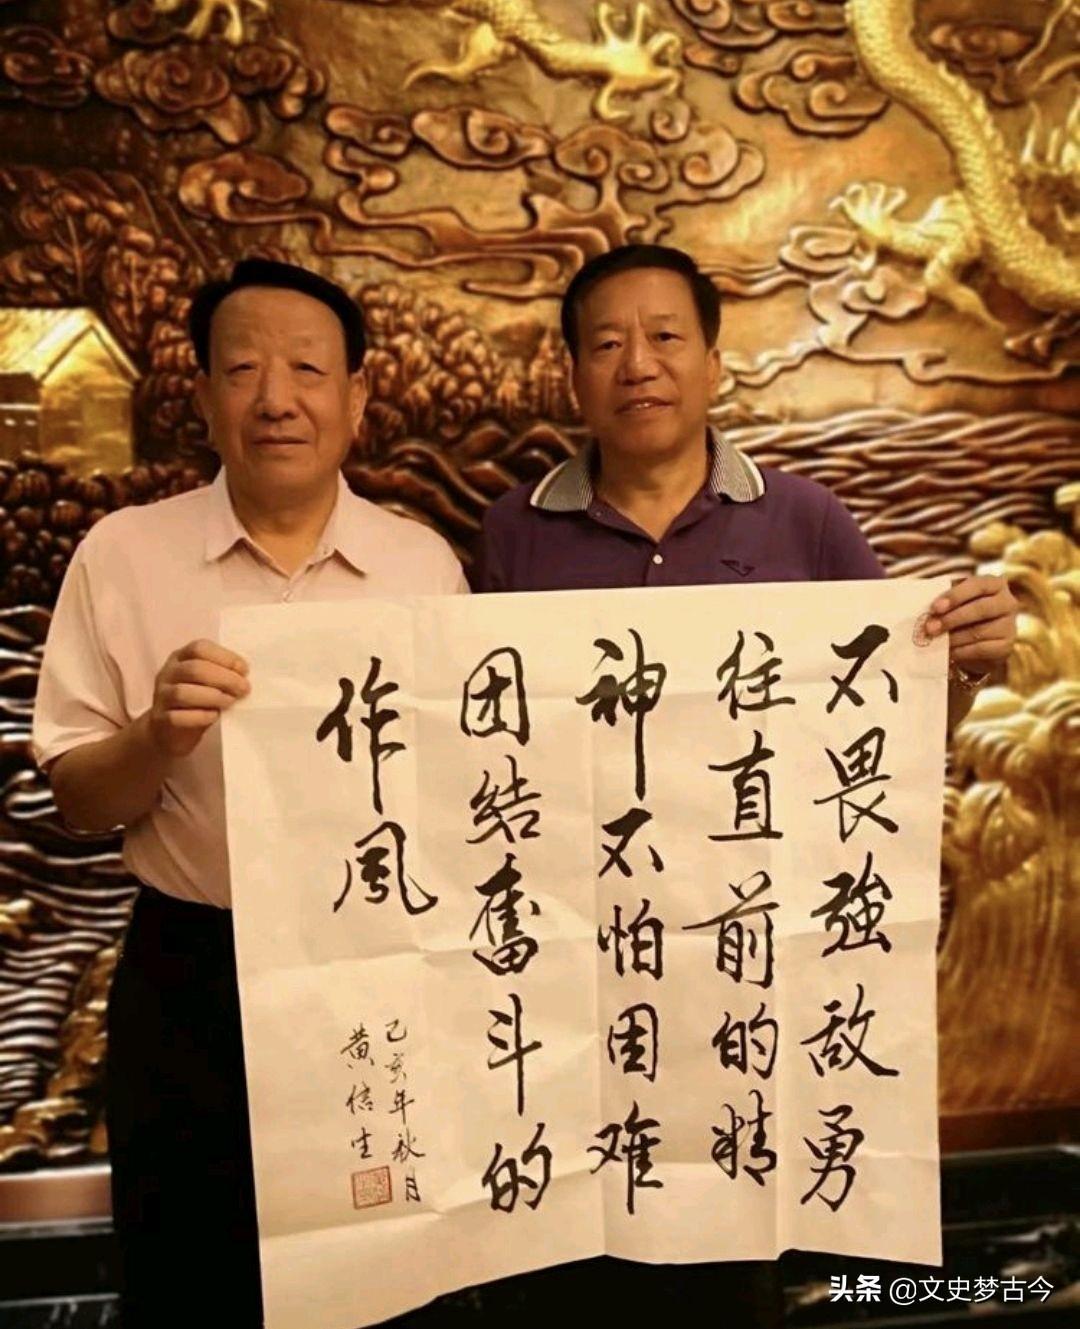 不畏強敌勇
往直前的精
神不怕困难
团结奮斗的
作風
己亥年秋月
黄信生
头条 @文史梦古今